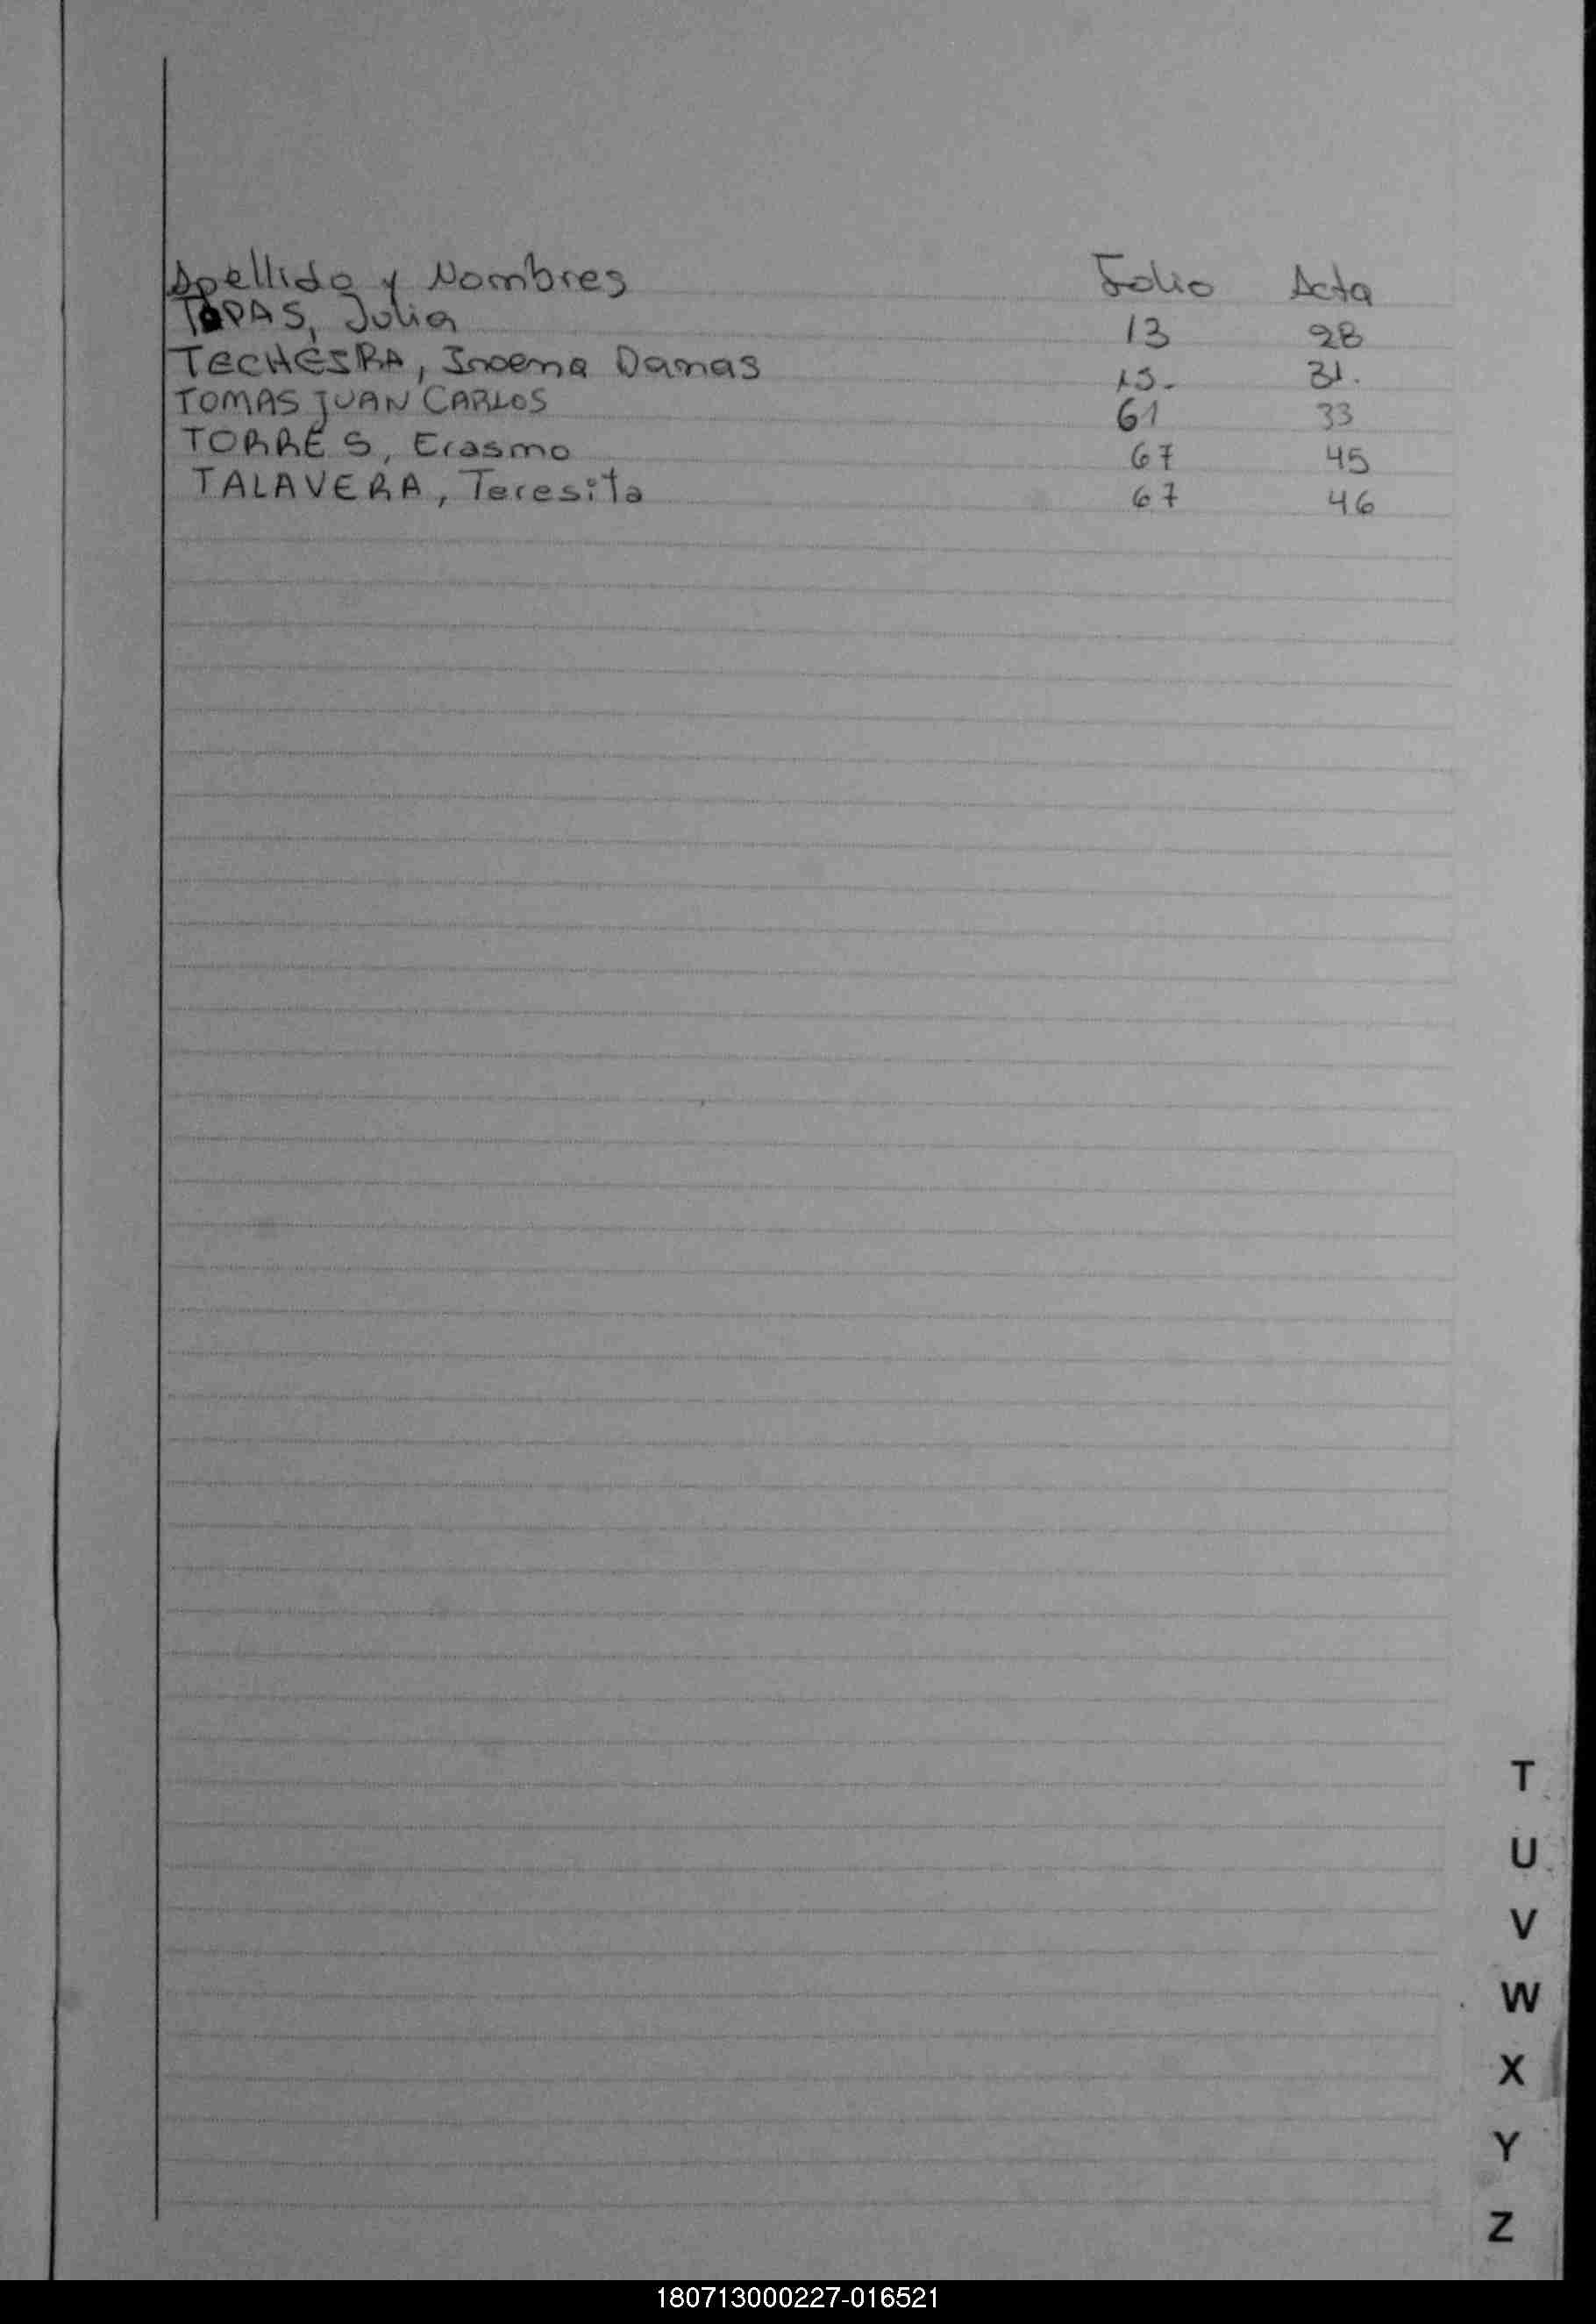 Apellido y Nombres Folio Acta
TAPAS, Julia 13 28
TECHESRA, Damas 15- 31.
TOMAS JUAN CARLOS 61 33
TORRES, Erasmo 67 45
TALAVERA, Teresita 67 46
T
U
V
W
X
Y
Z
180713000227-016521